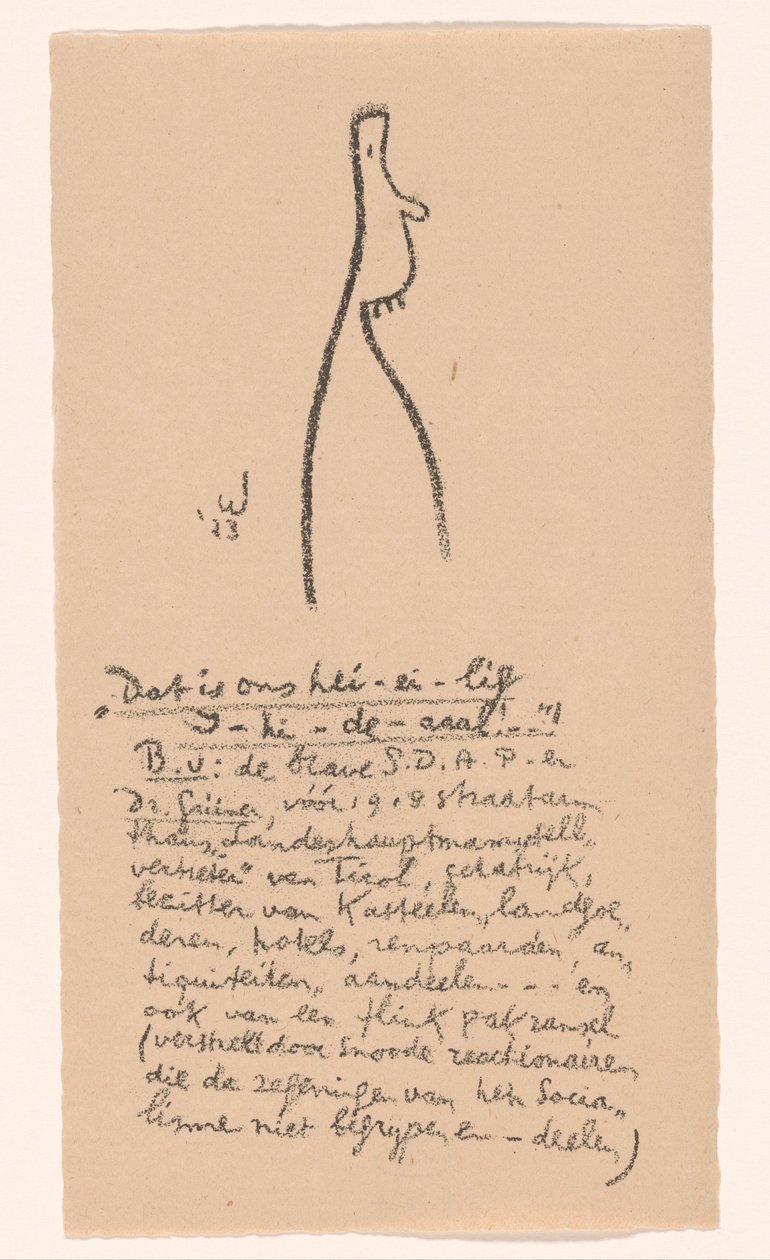 EW
'23
„Dat is ons hei-ei-lig
I-hi-de-aaal!..."!
B.v: de brave S.D.A.P.-er
Dr. Grüner, vóór 1918 straatarm,
thans „Landeshauptmannstell-
vertreter" van Tirol, schatrijk,
bezitter van Kasteelen, landgoe„
deren, hotels, renpaarden, an„
tiquiteiten, aandeelen - - - en
ook van een flink pak ransel
(verstrekt door snoode reactionairen,
die de zegeningen van het Socia„
lisme niet begrijpen en - deelen)